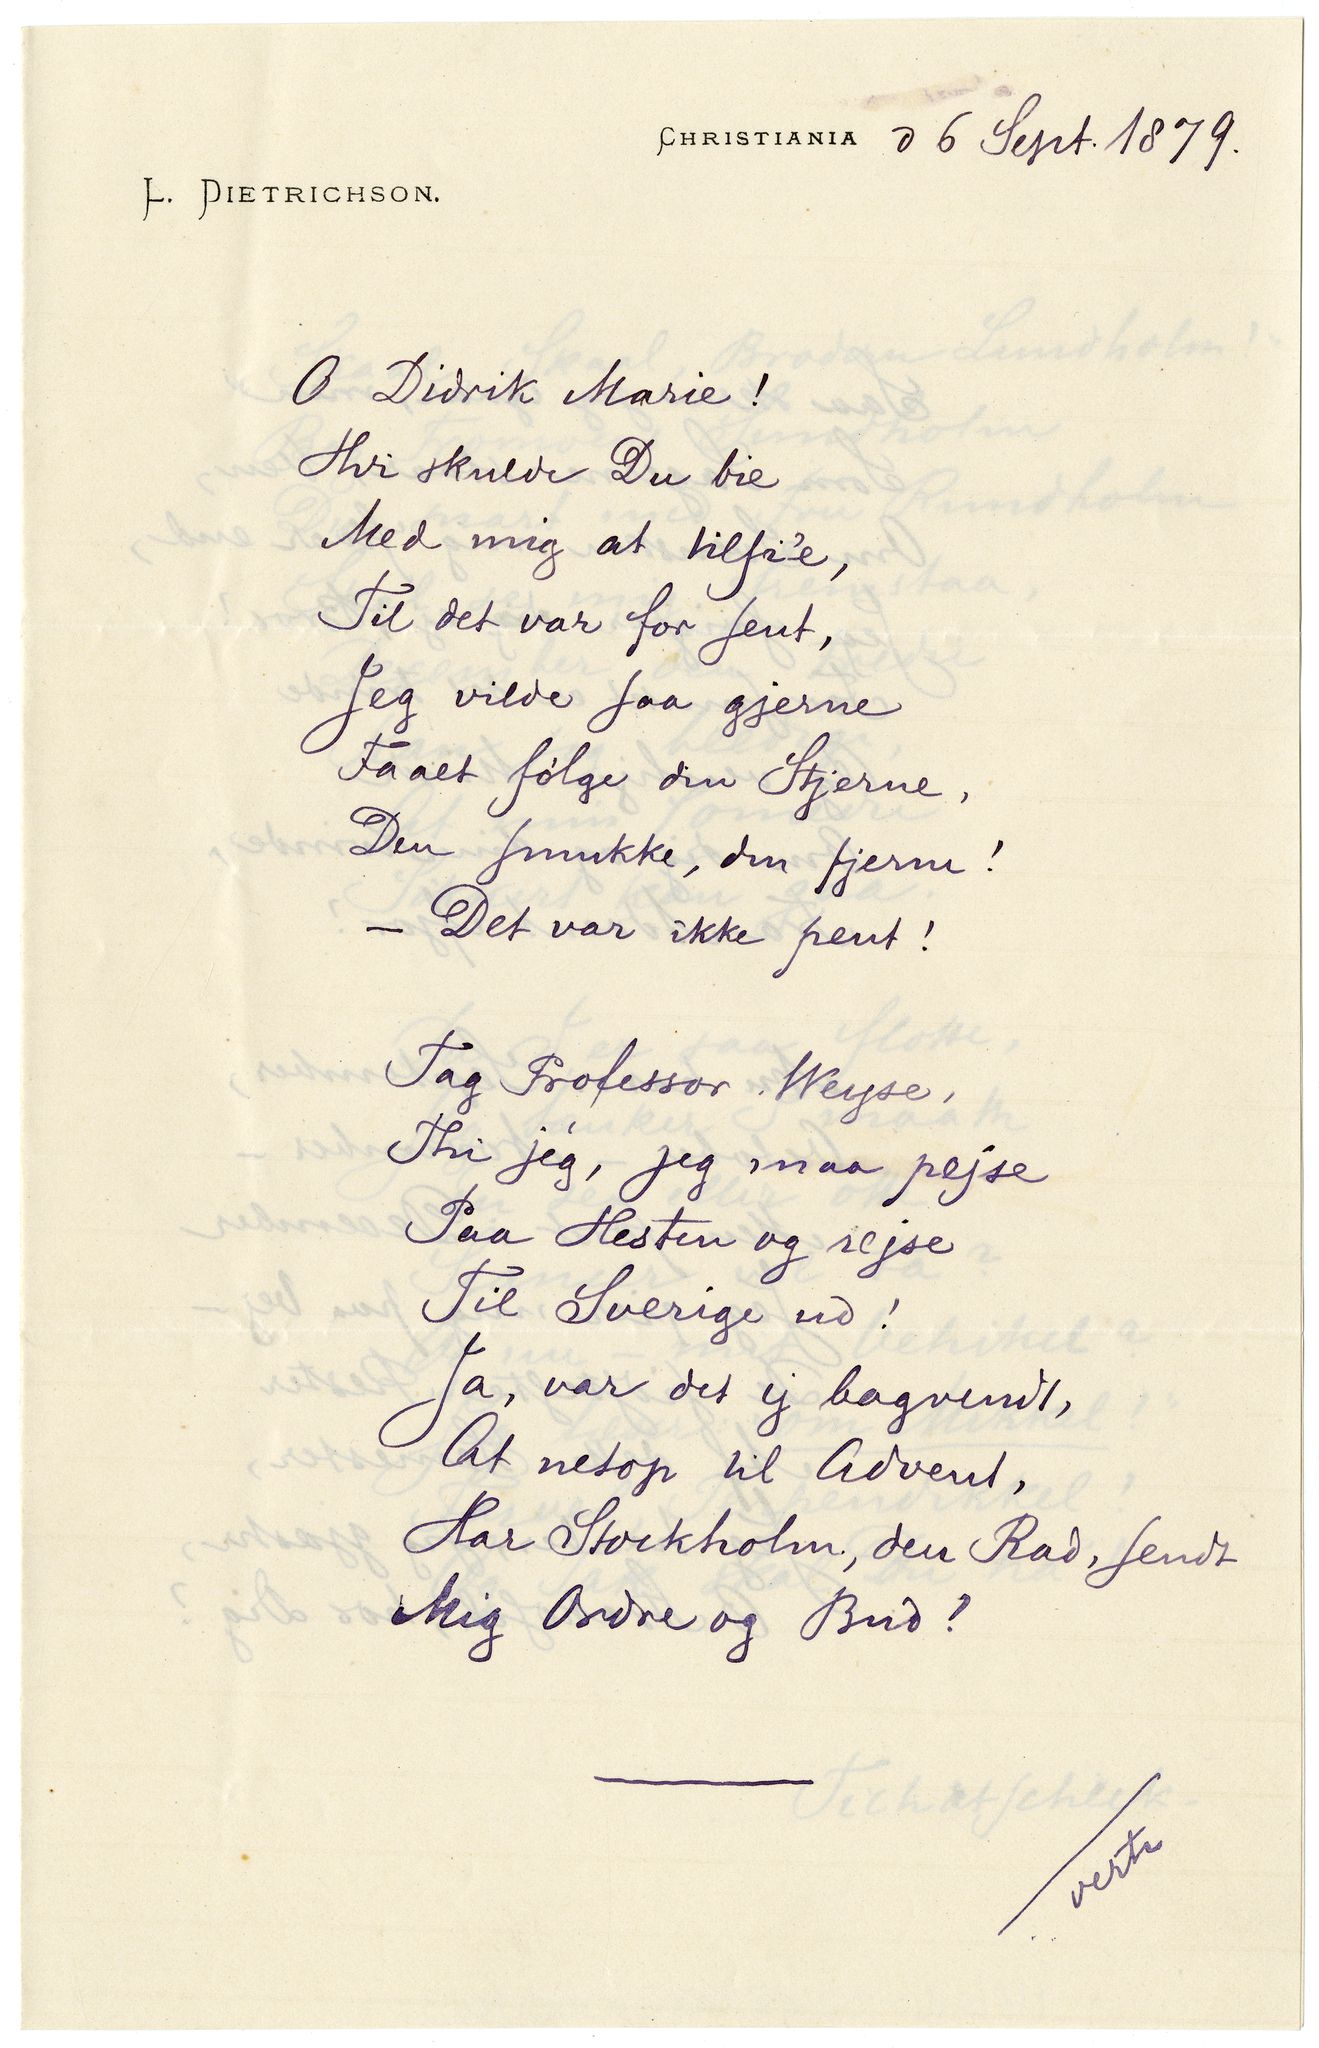 CHRISTIANIA d 6 Sept. 1879.
L. DIETRICHSON.
O Didrik Marie!
Hvi skulde Du bie
Med mig at tilsi'e,
Til det var for sent,
Jeg vilde saa gjerne
Faaet følge din Stjerne,
Den smukke, den fjerne!
– Det var ikke pent!
Tag Professor Weyse,
Thi jég, jeg maa pejse
Paa Hesten og rejse
Til Sverige ud!
Ja, var det ej bagvendt,
At netop til Advent,
Har Stockholm, den Rad, sendt
Mig Ordre og Bud?
verte